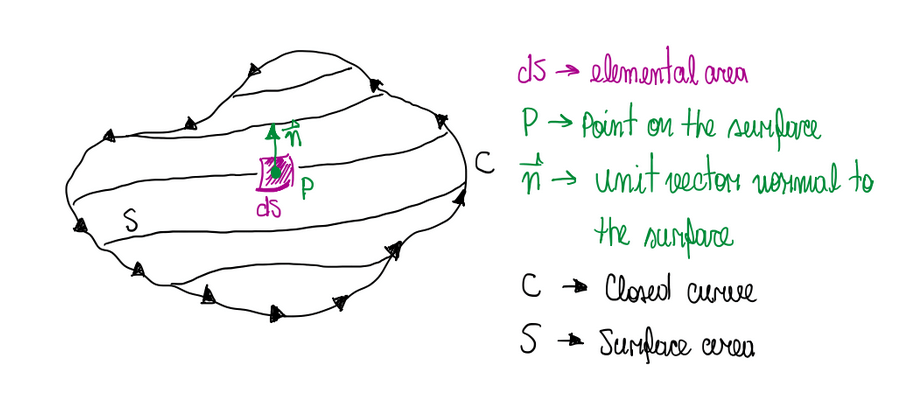 n⃗
P
ds
S
C
ds → elemental area
P → Point on the surface
n⃗ → unit vector normal to
the surface
C → Closed curve
S → Surface area